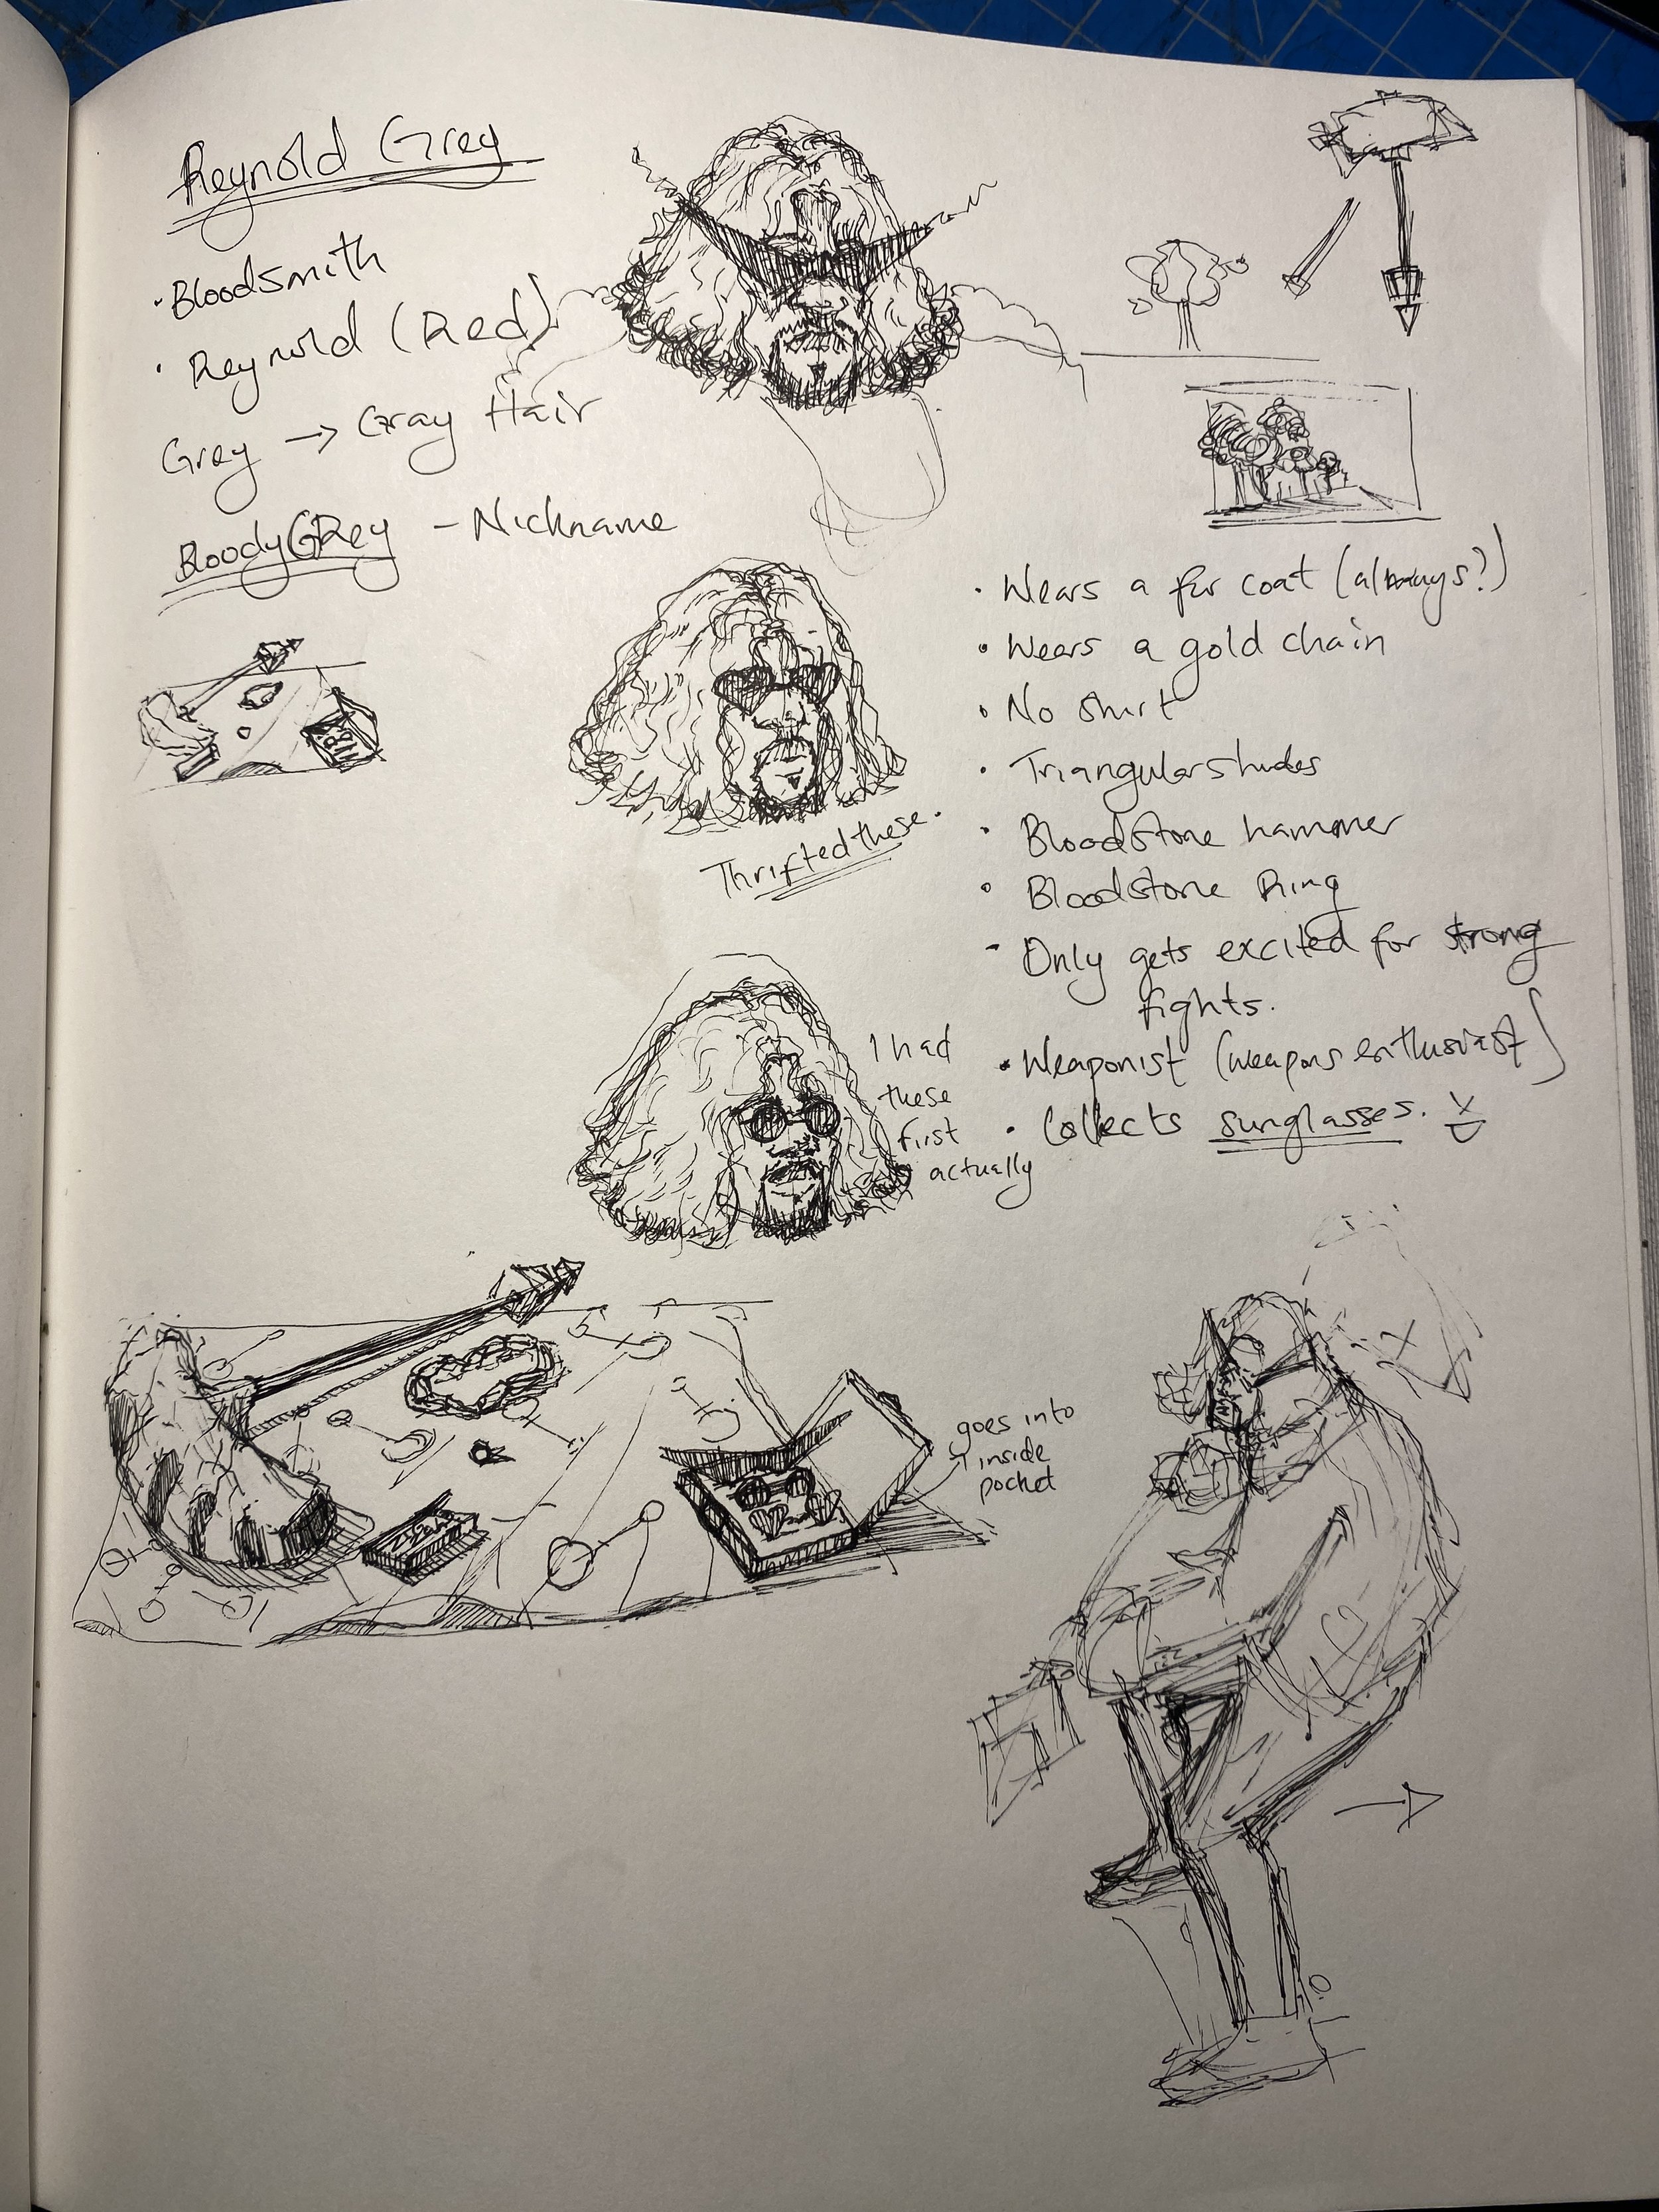 Reynold Grey
• Bloodsmith
• Reynold (Red)
Grey → Gray Hair
BloodyGRey - Nickname
• Wears a fur coat (always?)
• Wears a gold chain
• No Shirt
• Triangular shades
• Bloodstone hammer
• Bloodstone Ring
- Only gets excited for strong
fights.
• Weaponist (weapons enthusiast)
• Collects sunglasses.
Thrifted these.
I had
these
first
actually
goes into
inside
pocket